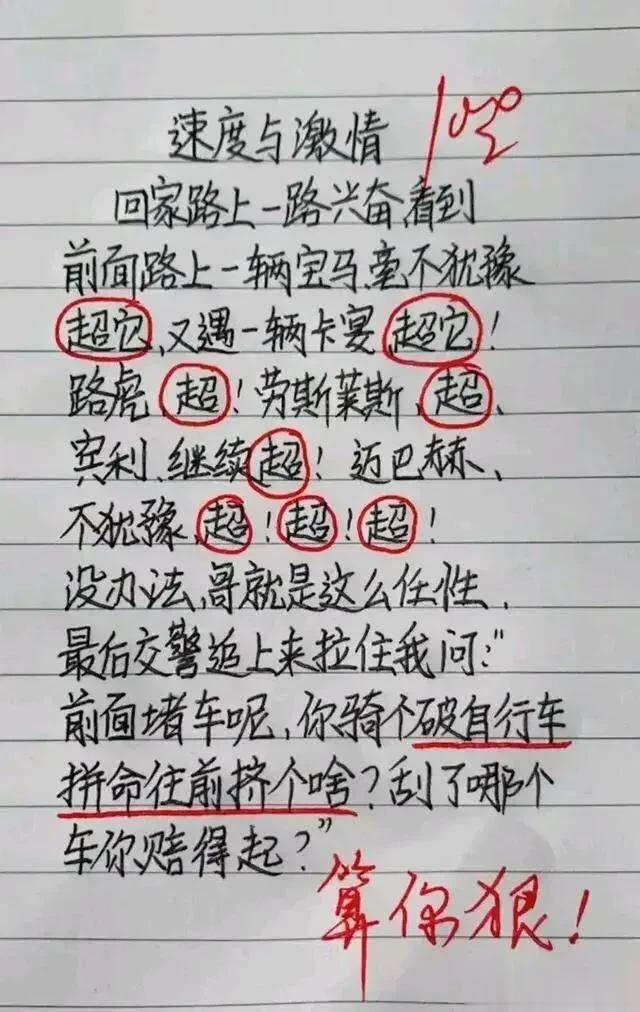 速度与激情
100
回家路上一路兴奋,看到
前面路上一辆宝马,毫不犹豫
超它,又遇一辆卡宴,超它!
路虎、超!劳斯莱斯、超、
宾利、继续超!迈巴赫、
不犹豫,超!超!超!
没办法,哥就是这么任性,
最后交警追上来拉住我问:"
前面堵车呢,你骑个破自行车
拼命往前挤个啥?刮了哪个
车你赔得起?"
算你狠!